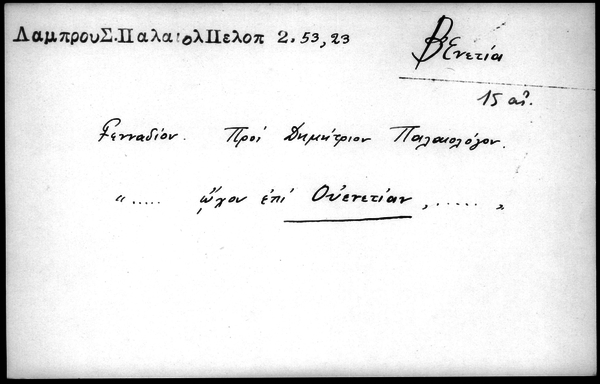 ΛαμπρουΣ.ΠαλαιολΠελοπ 2.53,23
Βενετία
15 αἰ.
Γενναδίου. Πρὸς Δημήτριον Παλαιολόγον.
"..... ᾤχου ἐπὶ Οὐενετίαν, ..... "